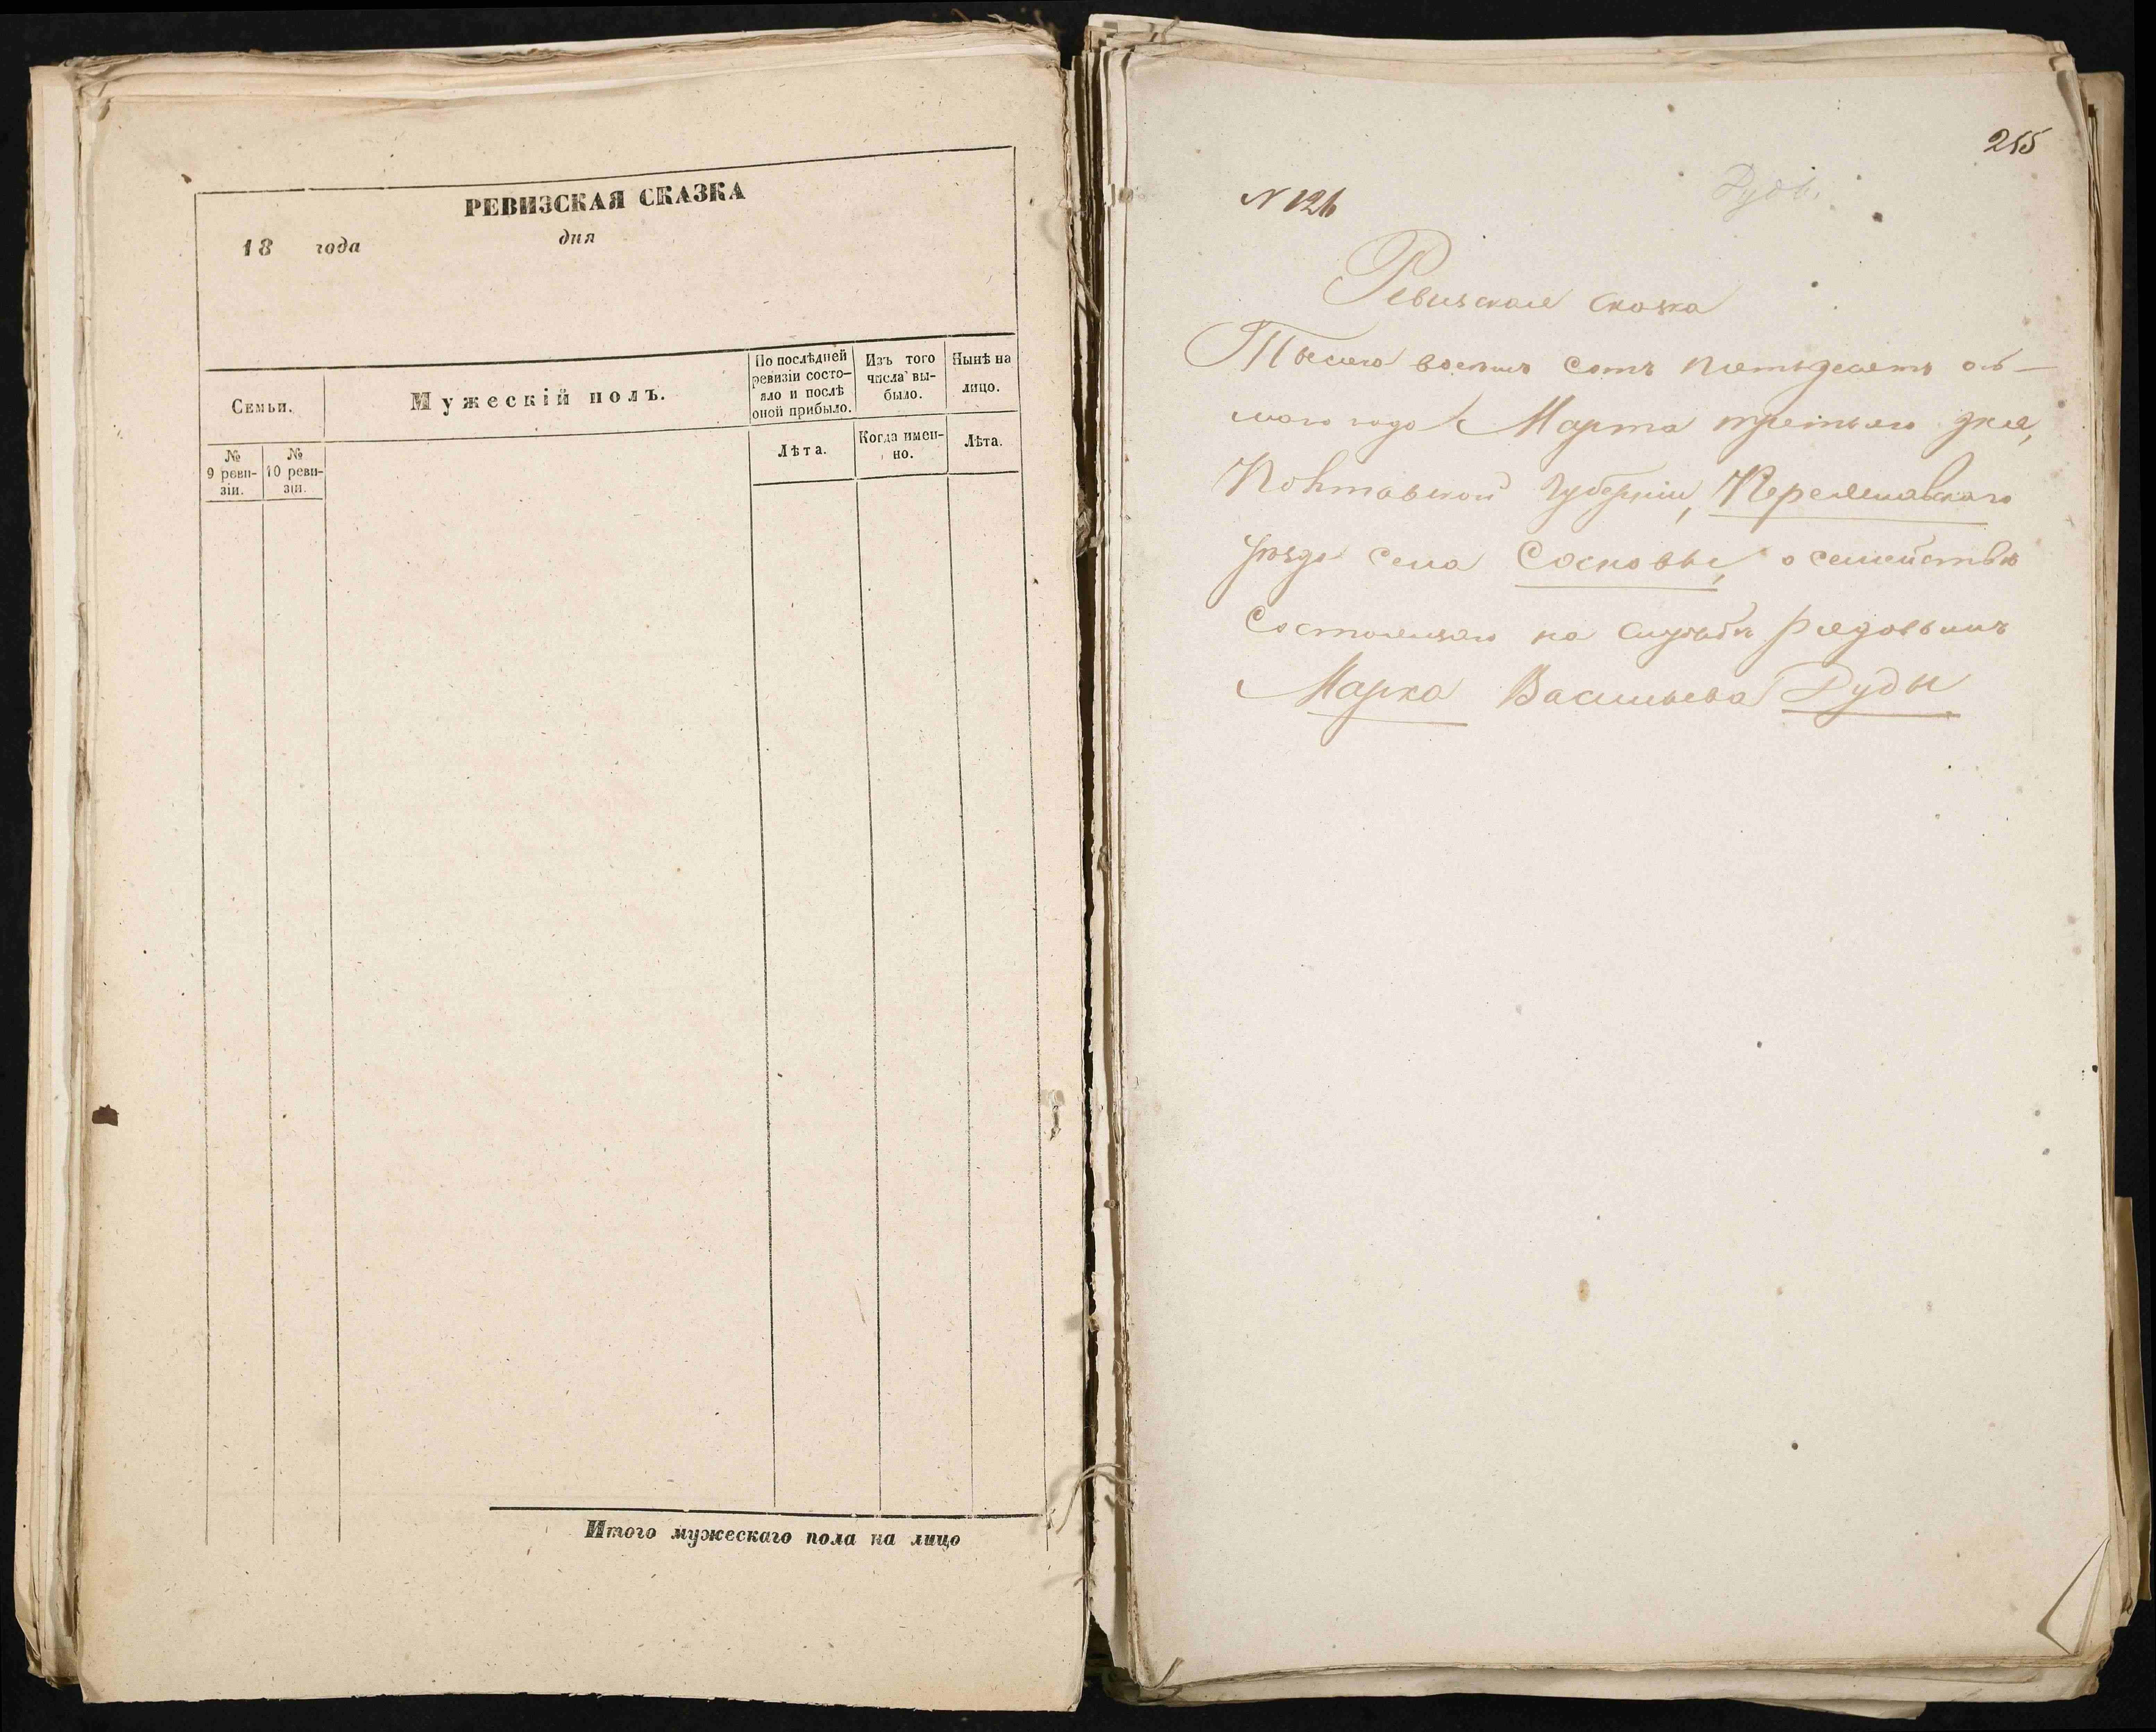 РЕВИЗСКАЯ СКАЗКА
18 года дня
Семьи.
Мужескій полъ.
По послѣдней ревизіи состо-
яло и послѣ оной прибыло.
Изъ того числа вы-
было.
Нынѣ на лицо.
№ 9 реви-
зіи.
№ 10 реви-
зіи.
Лѣта.
Когда имен-
но.
Лѣта.
Итого мужескаго пола на лицо
255
N 126
Ревизская сказка
Тысяча восемь сотъ пятьдесятъ ось-
маго года Марта третьяго дня,
Полтавской Губерніи, Переяславскаго
уѣзда села Сосновы, о семействѣ
Состоящаго на службѣ рядовымъ
Марка Васильева Руды